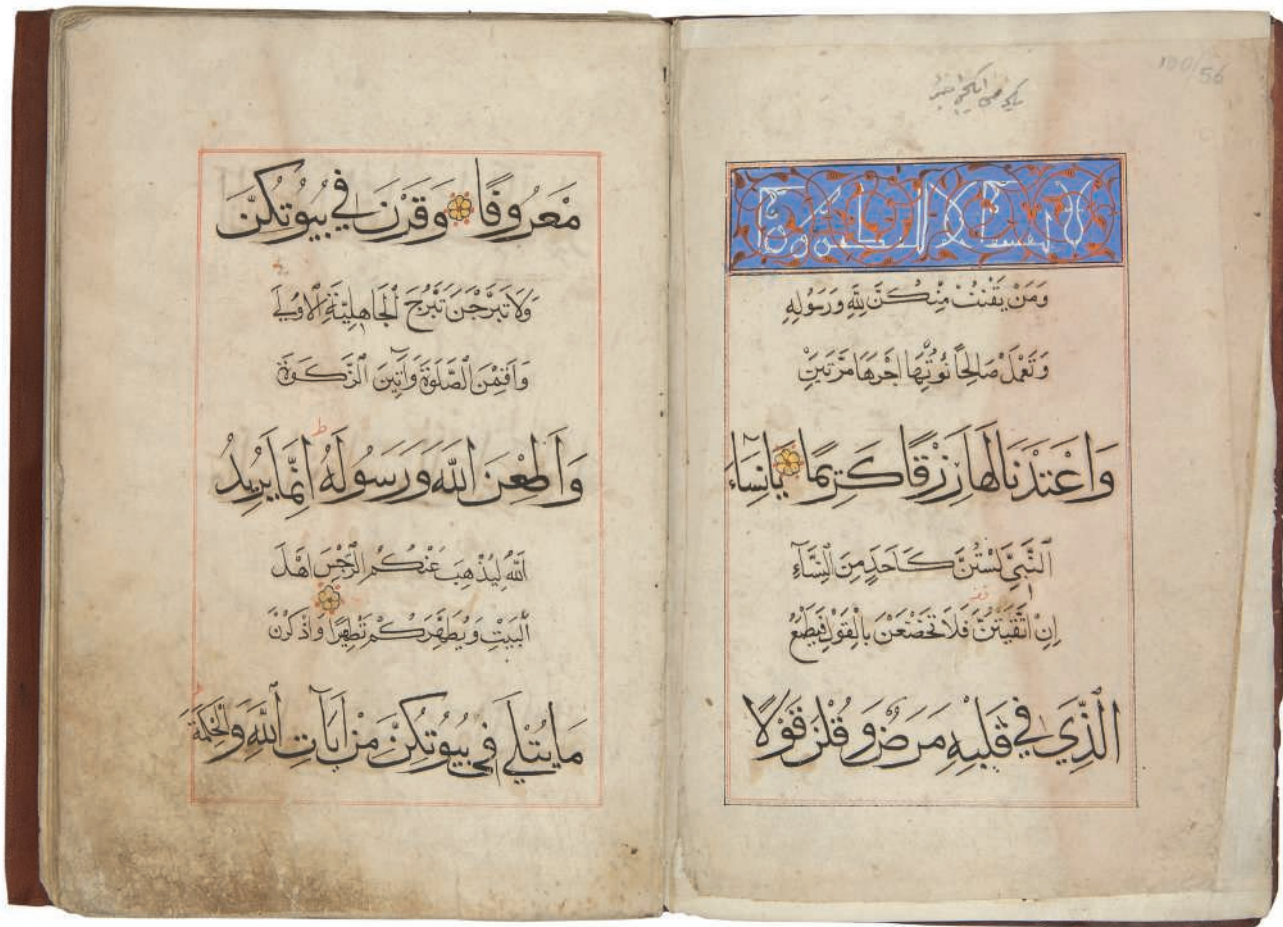 100/56
لا يمسه الا المطهرون
وَمَنْ يَقْنُتْ مِنْكُنَّ لِلّٰهِ وَرَسُولِهِ
وَتَعْمَلْ صَالِحًا نُؤْتِهَا اَجْرَهَا مَرَّتَيْنِ
وَاَعْتَدْنَا لَهَا رِزْقًا كَرِيمًا يَا نِسَاءَ
النَّبِيِّ لَسْتُنَّ كَاَحَدٍ مِنَ النِّسَآءِ
اِنِ اتَّقَيْتُنَّ فَلَا تَخْضَعْنَ بِالْقَوْلِ فَيَطْمَعَ
الَّذِي فِي قَلْبِهِ مَرَضٌ وَقُلْنَ قَوْلًا
مَعْرُوفًا وَقَرْنَ فِي بُيُوتِكُنَّ
وَلَا تَبَرَّجْنَ تَبَرُّجَ الْجَاهِلِيَّةِ الْاُولَى
وَاَقِمْنَ الصَّلٰوةَ وَآتِينَ الزَّكٰوةَ
وَاَطِعْنَ اللّٰهَ وَرَسُولَهُ اِنَّمَا يُرِيدُ
اللّٰهُ لِيُذْهِبَ عَنْكُمُ الرِّجْسَ اَهْلَ
الْبَيْتِ وَيُطَهِّرَكُمْ تَطْهِيرًا وَاذْكُرْنَ
مَا يُتْلَى فِي بُيُوتِكُنَّ مِنْ اٰيَاتِ اللّٰهِ وَالْحِكْمَةِ